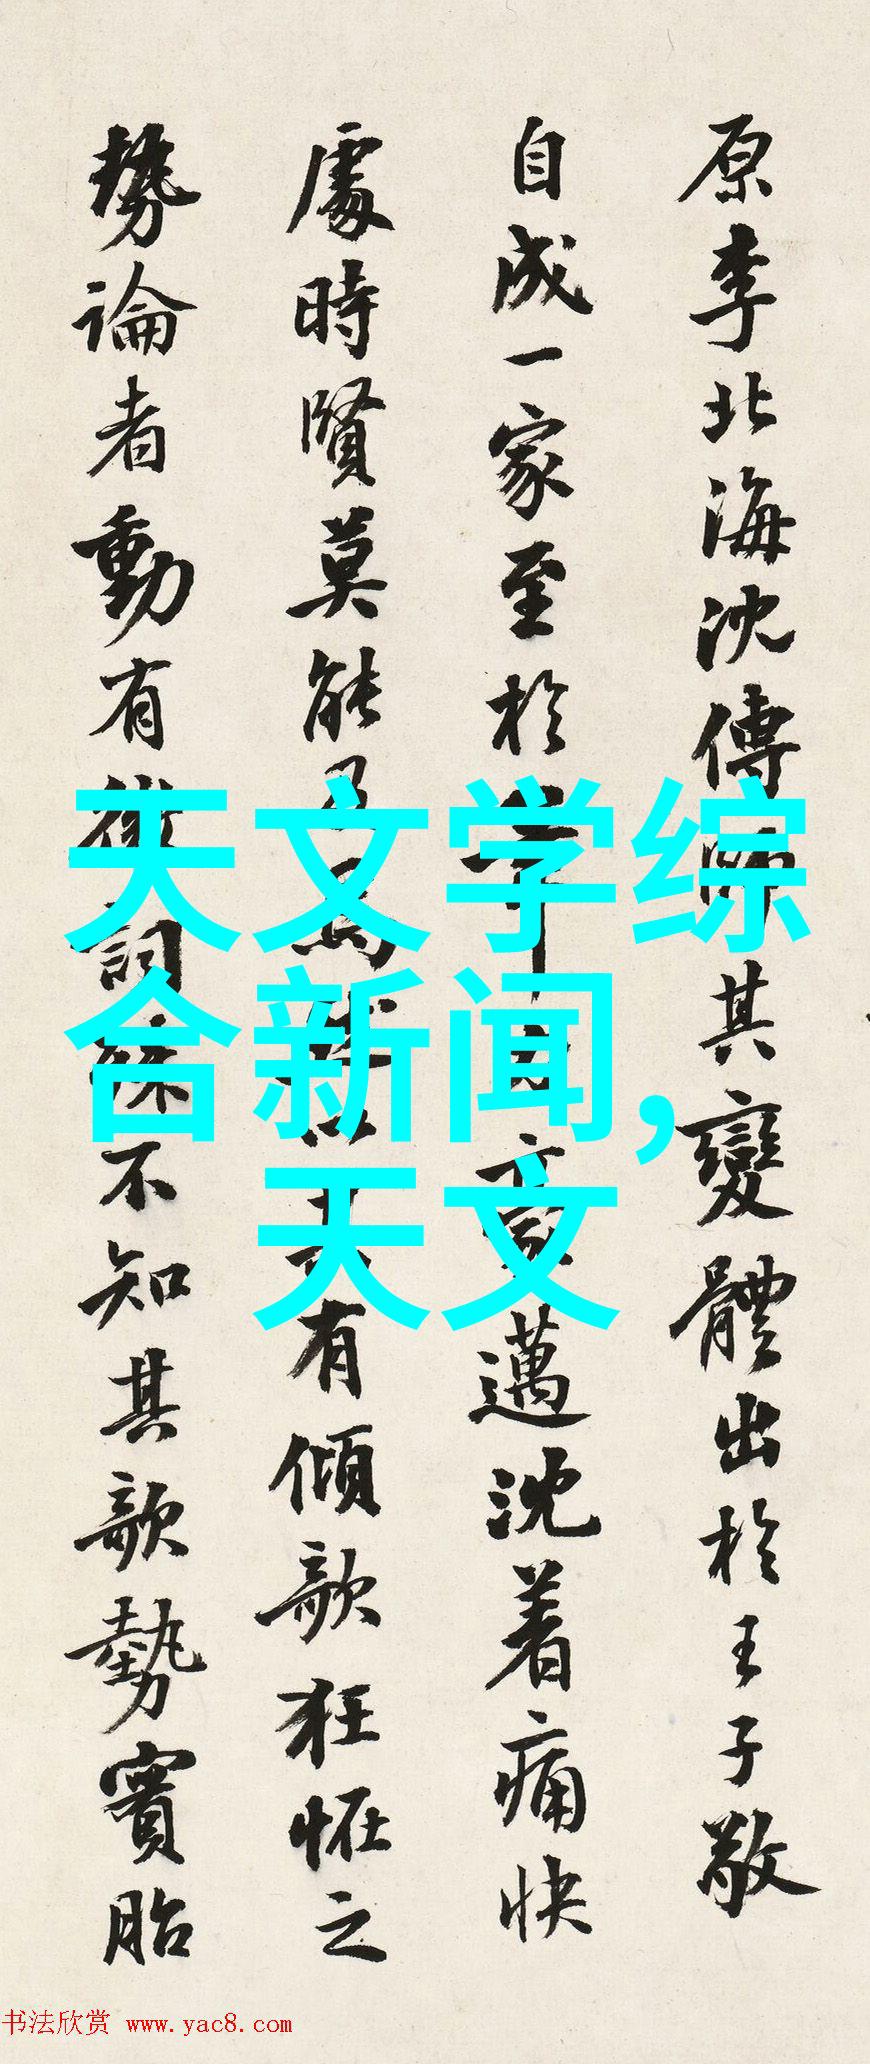 原李北海沈傳師其變體出於王子敬
自成一家至於豪邁沈着痛快
處時賢莫能有傾欹狂怪之
勢論者動有微詞殊不知其欹勢實胎
天文学综
合新闻,
天文
书法欣赏 www.yac8.com